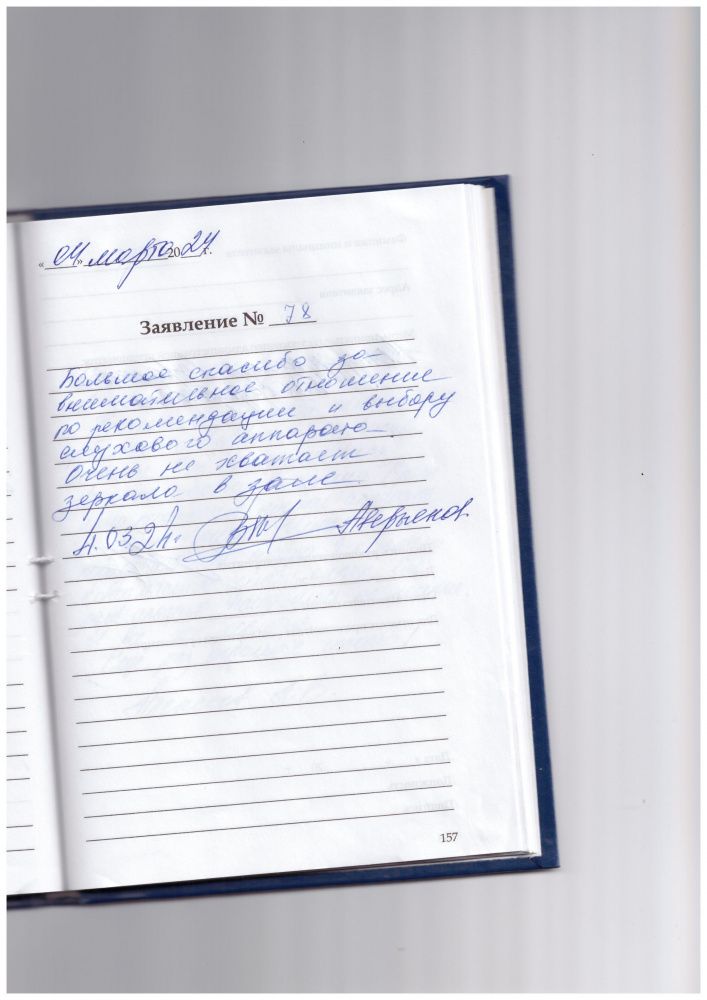 «04» марта 2024г.
Заявление № 78
Большое спасибо за
внимательное отношение
по рекомендации и выбору
слухового аппарата.
Очень не хватает
зеркала в зале
4.03.24г. Аверьянов
157